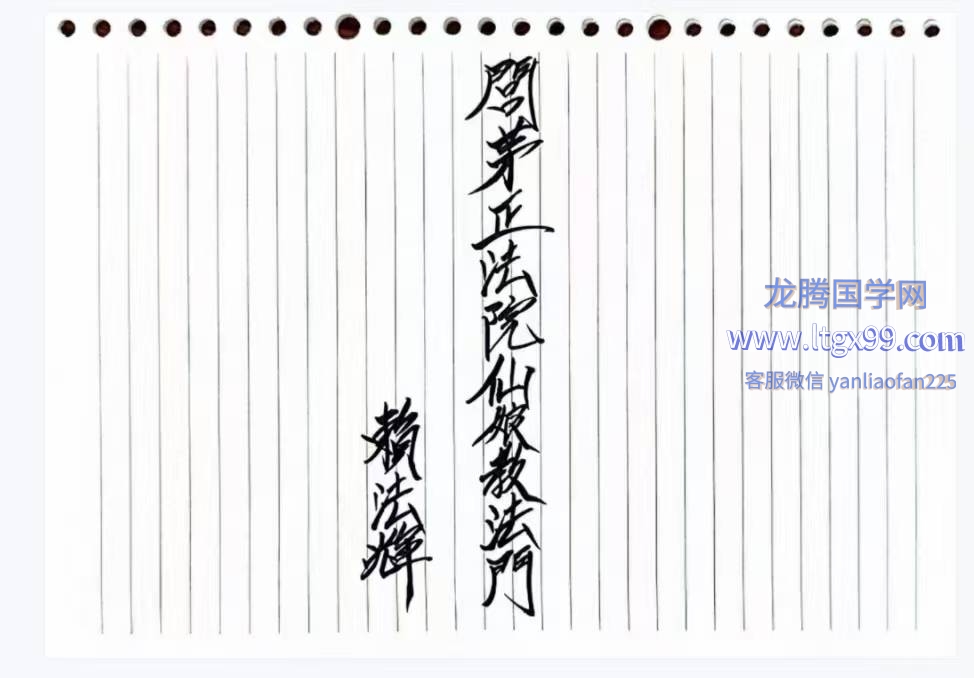 閭茅正法院仙娘教法門
賴法輝
龙腾国学网
www.ltgx99.com
客服微信 yanliaofan225